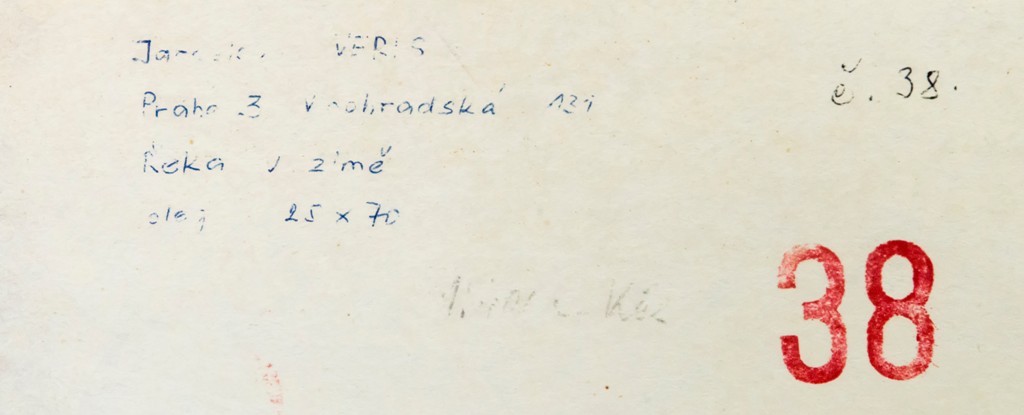 Jaroslav VERIS
Praha 3 Vinohradská 121
č. 38.
Řeka v zimě
olej 25 x 70
38